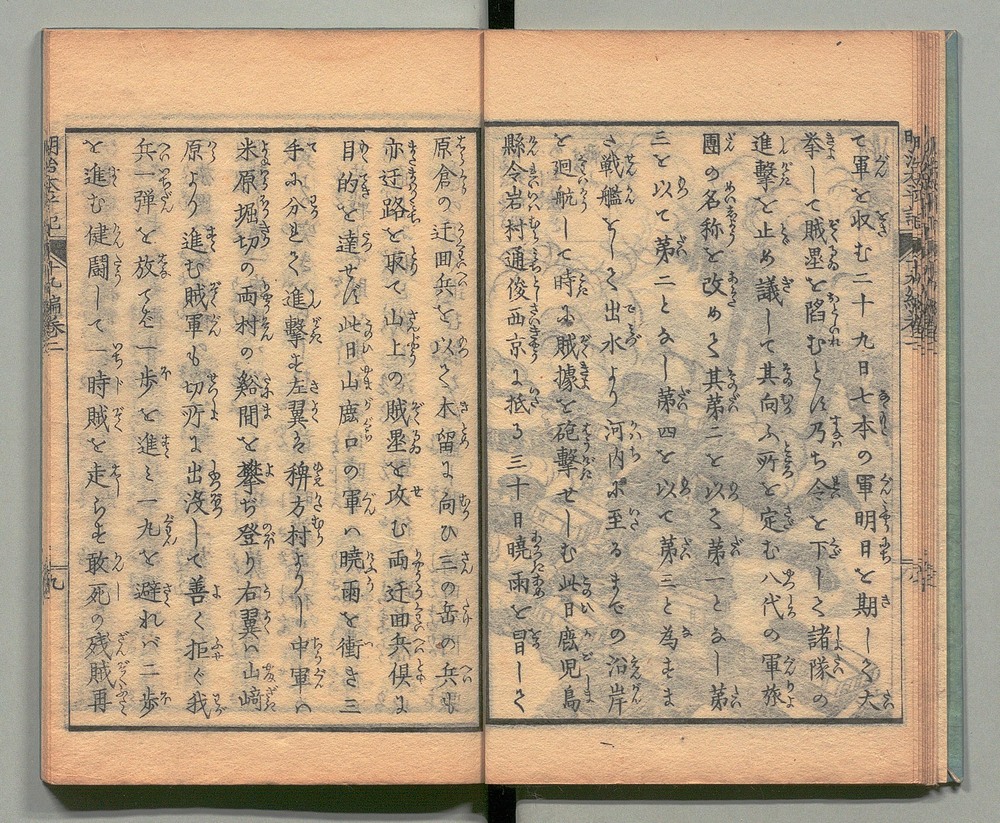 て軍を収む二十九日七本の軍明日を期しく大
挙して賊塁を陷むとす乃ち令を下しく諸隊の
進撃を止め議して其向ふ所を定む八代の軍旅
團の名称を改めく其第二を以く第一となし第
三を以て第二となし第四を以て第三と為すま
さ戦艦をしく出水より河内に至るまでの沿岸
を廻航して時に賊據を砲撃せしむ此日鹿児島
縣令岩村通俊西京に抵る三十日暁雨を冒しく
原倉の迂回兵を以く木留に向ひ三の岳の兵も
亦迂路を取て山上の賊塁を攻む両迂回兵倶に
目的を達せず此日山鹿口の軍ハ暁雨を衝き三
手に分れく進撃す左翼は稗方村よりし中軍ハ
米原堀切の両村の谿間を攀ぢ登り右翼ハ山﨑
原より進む賊軍も切所に出没して善く拒ぐ我
兵一弾を放てバ一歩を進ミ一丸を避れバ二歩
を進む健闘して一時賊を走らす敢死の残賊再
明治太平記
十九編巻二
九